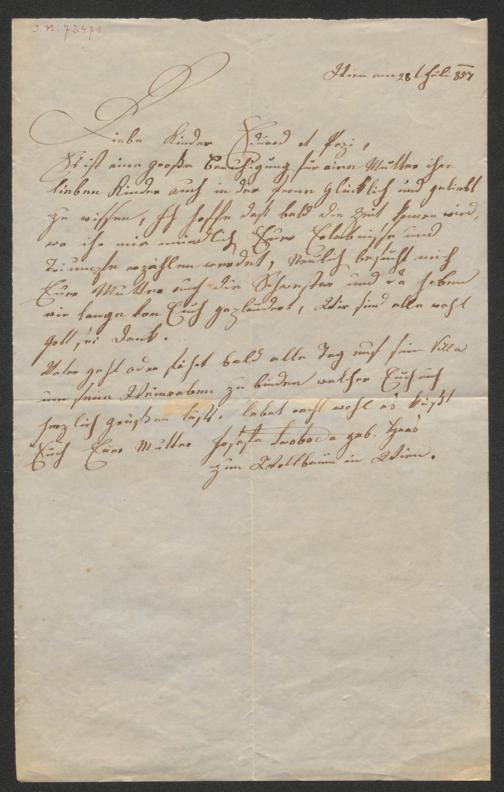 J. N. 73471
Wien am 28t Juli 857
Liebe Kinder Eduard et Pezi,
Es ist eine große Beruhigung für eine Mutter ihre
lieben Kinder auch in der Ferne glücklich und geliebt
zu wissen, Ich hoffe daß bald die Zeit komen wird,
wo ihr mir mündlich Eure Erlebnisse und
Triumpfe erzählen werdet, Neulich besucht mich
Eure Mutter auch die Schwester und da haben
wir lange von Euch geplaudert, Wir sind alle wohl
Gott sei Dank.
Vater geht oder fährt bald alle Tag auf sein Villa
um seine Weinreben zu binden welcher Euch auch
herzlich grüßen läßt. lebet recht wohl es küßt
Euch Eure Mutter Josefa geb. Haas
zum in Wien.